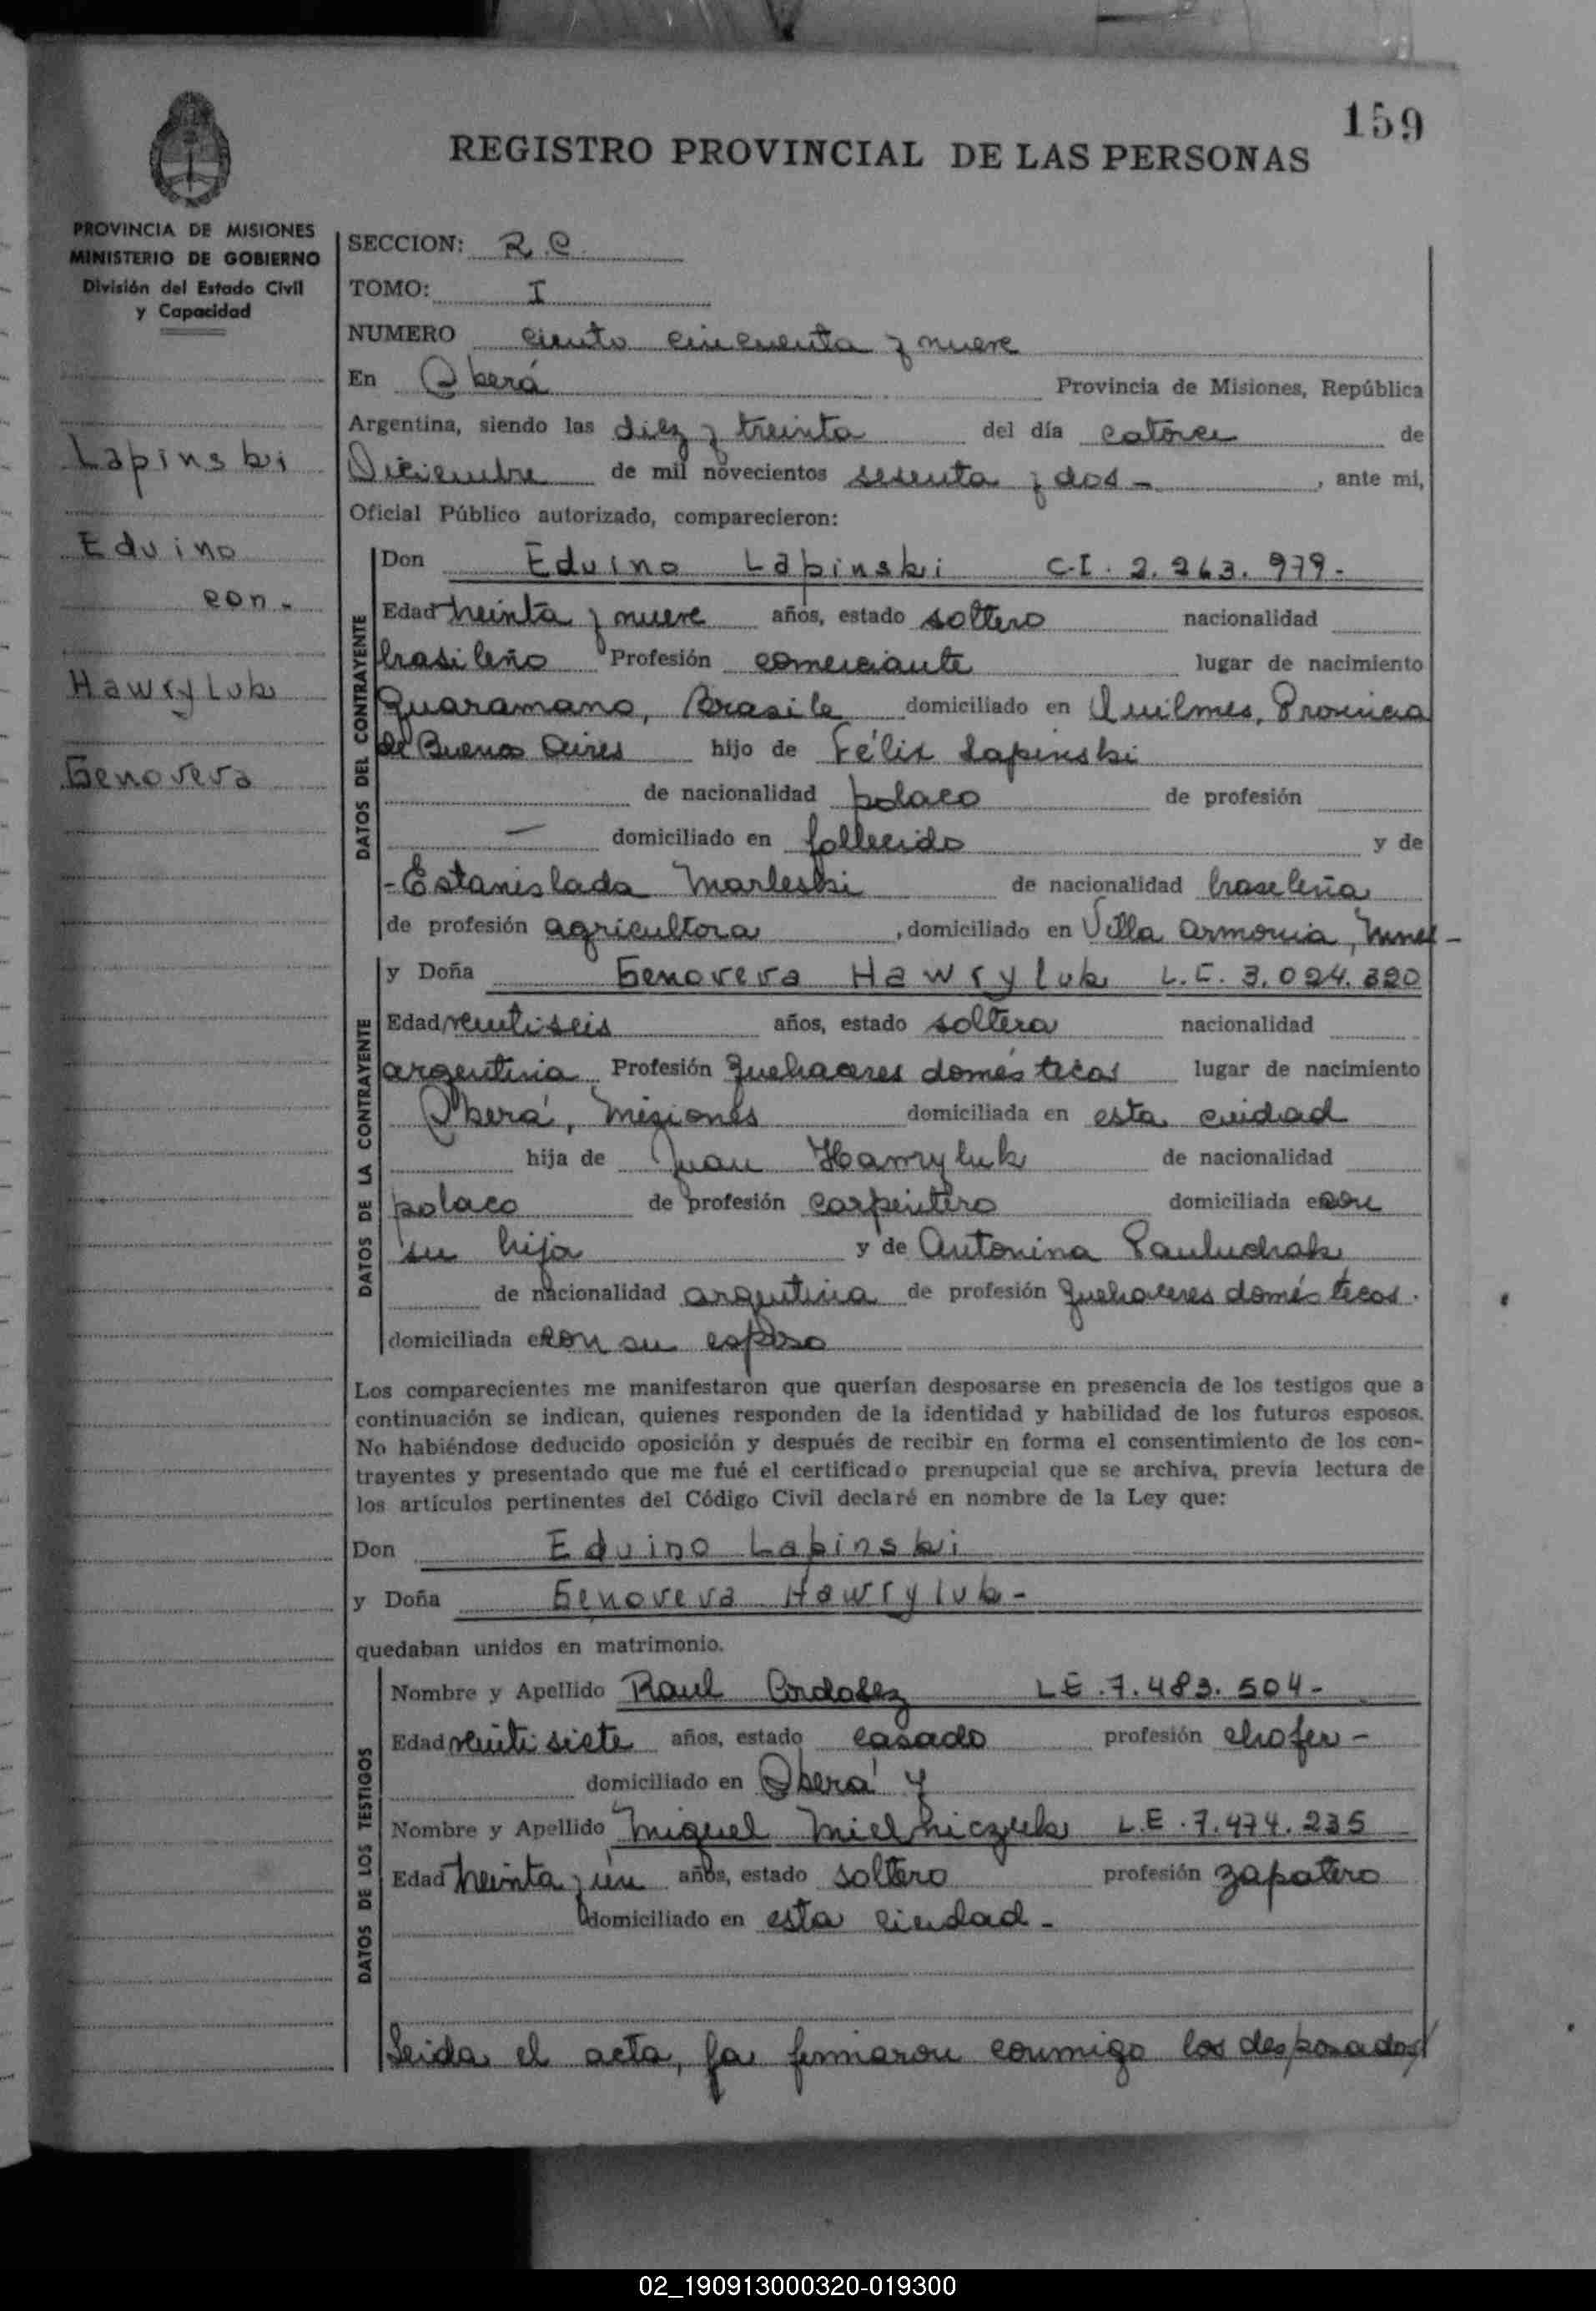 159
REGISTRO PROVINCIAL DE LAS PERSONAS
PROVINCIA DE MISIONES
MINISTERIO DE GOBIERNO
División del Estado Civil
y Capacidad
Lapinski
Eduino
con.
Hawryluk
Genoveva
SECCION: R.C.
TOMO: I
NUMERO ciento cincuenta y nueve
En Oberá Provincia de Misiones, República
Argentina, siendo las diez y treinta del día catorce de
Diciembre de mil novecientos sesenta y dos - , ante mi,
Oficial Público autorizado, comparecieron:
DATOS DEL CONTRAYENTE
Don Eduino Lapinski C.I. 2.263.979-
Edad treinta y nueve años, estado soltero nacionalidad
brasileño Profesión comerciante lugar de nacimiento
Guaramano, Brasile domiciliado en Quilmes, Provincia
de Buenos Aires hijo de Félix Lapinski
de nacionalidad polaco de profesión
— domiciliado en fallecido y de
- Estanislada Marleski de nacionalidad brasileña
de profesión agricultora , domiciliado en Villa Armonia,
DATOS DE LA CONTRAYENTE
y Doña Genoveva Hawryluk L.C. 3.024.320
Edad veintiseis años, estado soltera nacionalidad
argentina Profesión quehaceres domésticos lugar de nacimiento
Oberá, Misiones domiciliada en esta ciudad
hija de Juan Hawryluk de nacionalidad
polaco de profesión carpintero domiciliada en con
su hija y de Antonina Pauluchak
de nacionalidad argentina de profesión quehaceres domésticos.
domiciliada en con su esposo
Los comparecientes me manifestaron que querían desposarse en presencia de los testigos que a
continuación se indican, quienes responden de la identidad y habilidad de los futuros esposos.
No habiéndose deducido oposición y después de recibir en forma el consentimiento de los con-
trayentes y presentado que me fué el certificado prenupcial que se archiva, previa lectura de
los artículos pertinentes del Código Civil declaré en nombre de la Ley que:
Don Eduino Lapinski
y Doña Genoveva Hawryluk -
quedaban unidos en matrimonio.
DATOS DE LOS TESTIGOS
Nombre y Apellido Raul Cordobez L.E. 7.483.504-
Edad veintisiete años, estado casado profesión chofer -
domiciliado en Oberá y
Nombre y Apellido Miguel Mielniczuk L.E. 7.474.235
Edad treinta y un años, estado soltero profesión zapatero
domiciliado en esta ciudad -
Leida el acta, la firmaron conmigo los desposados
02_190913000320-019300